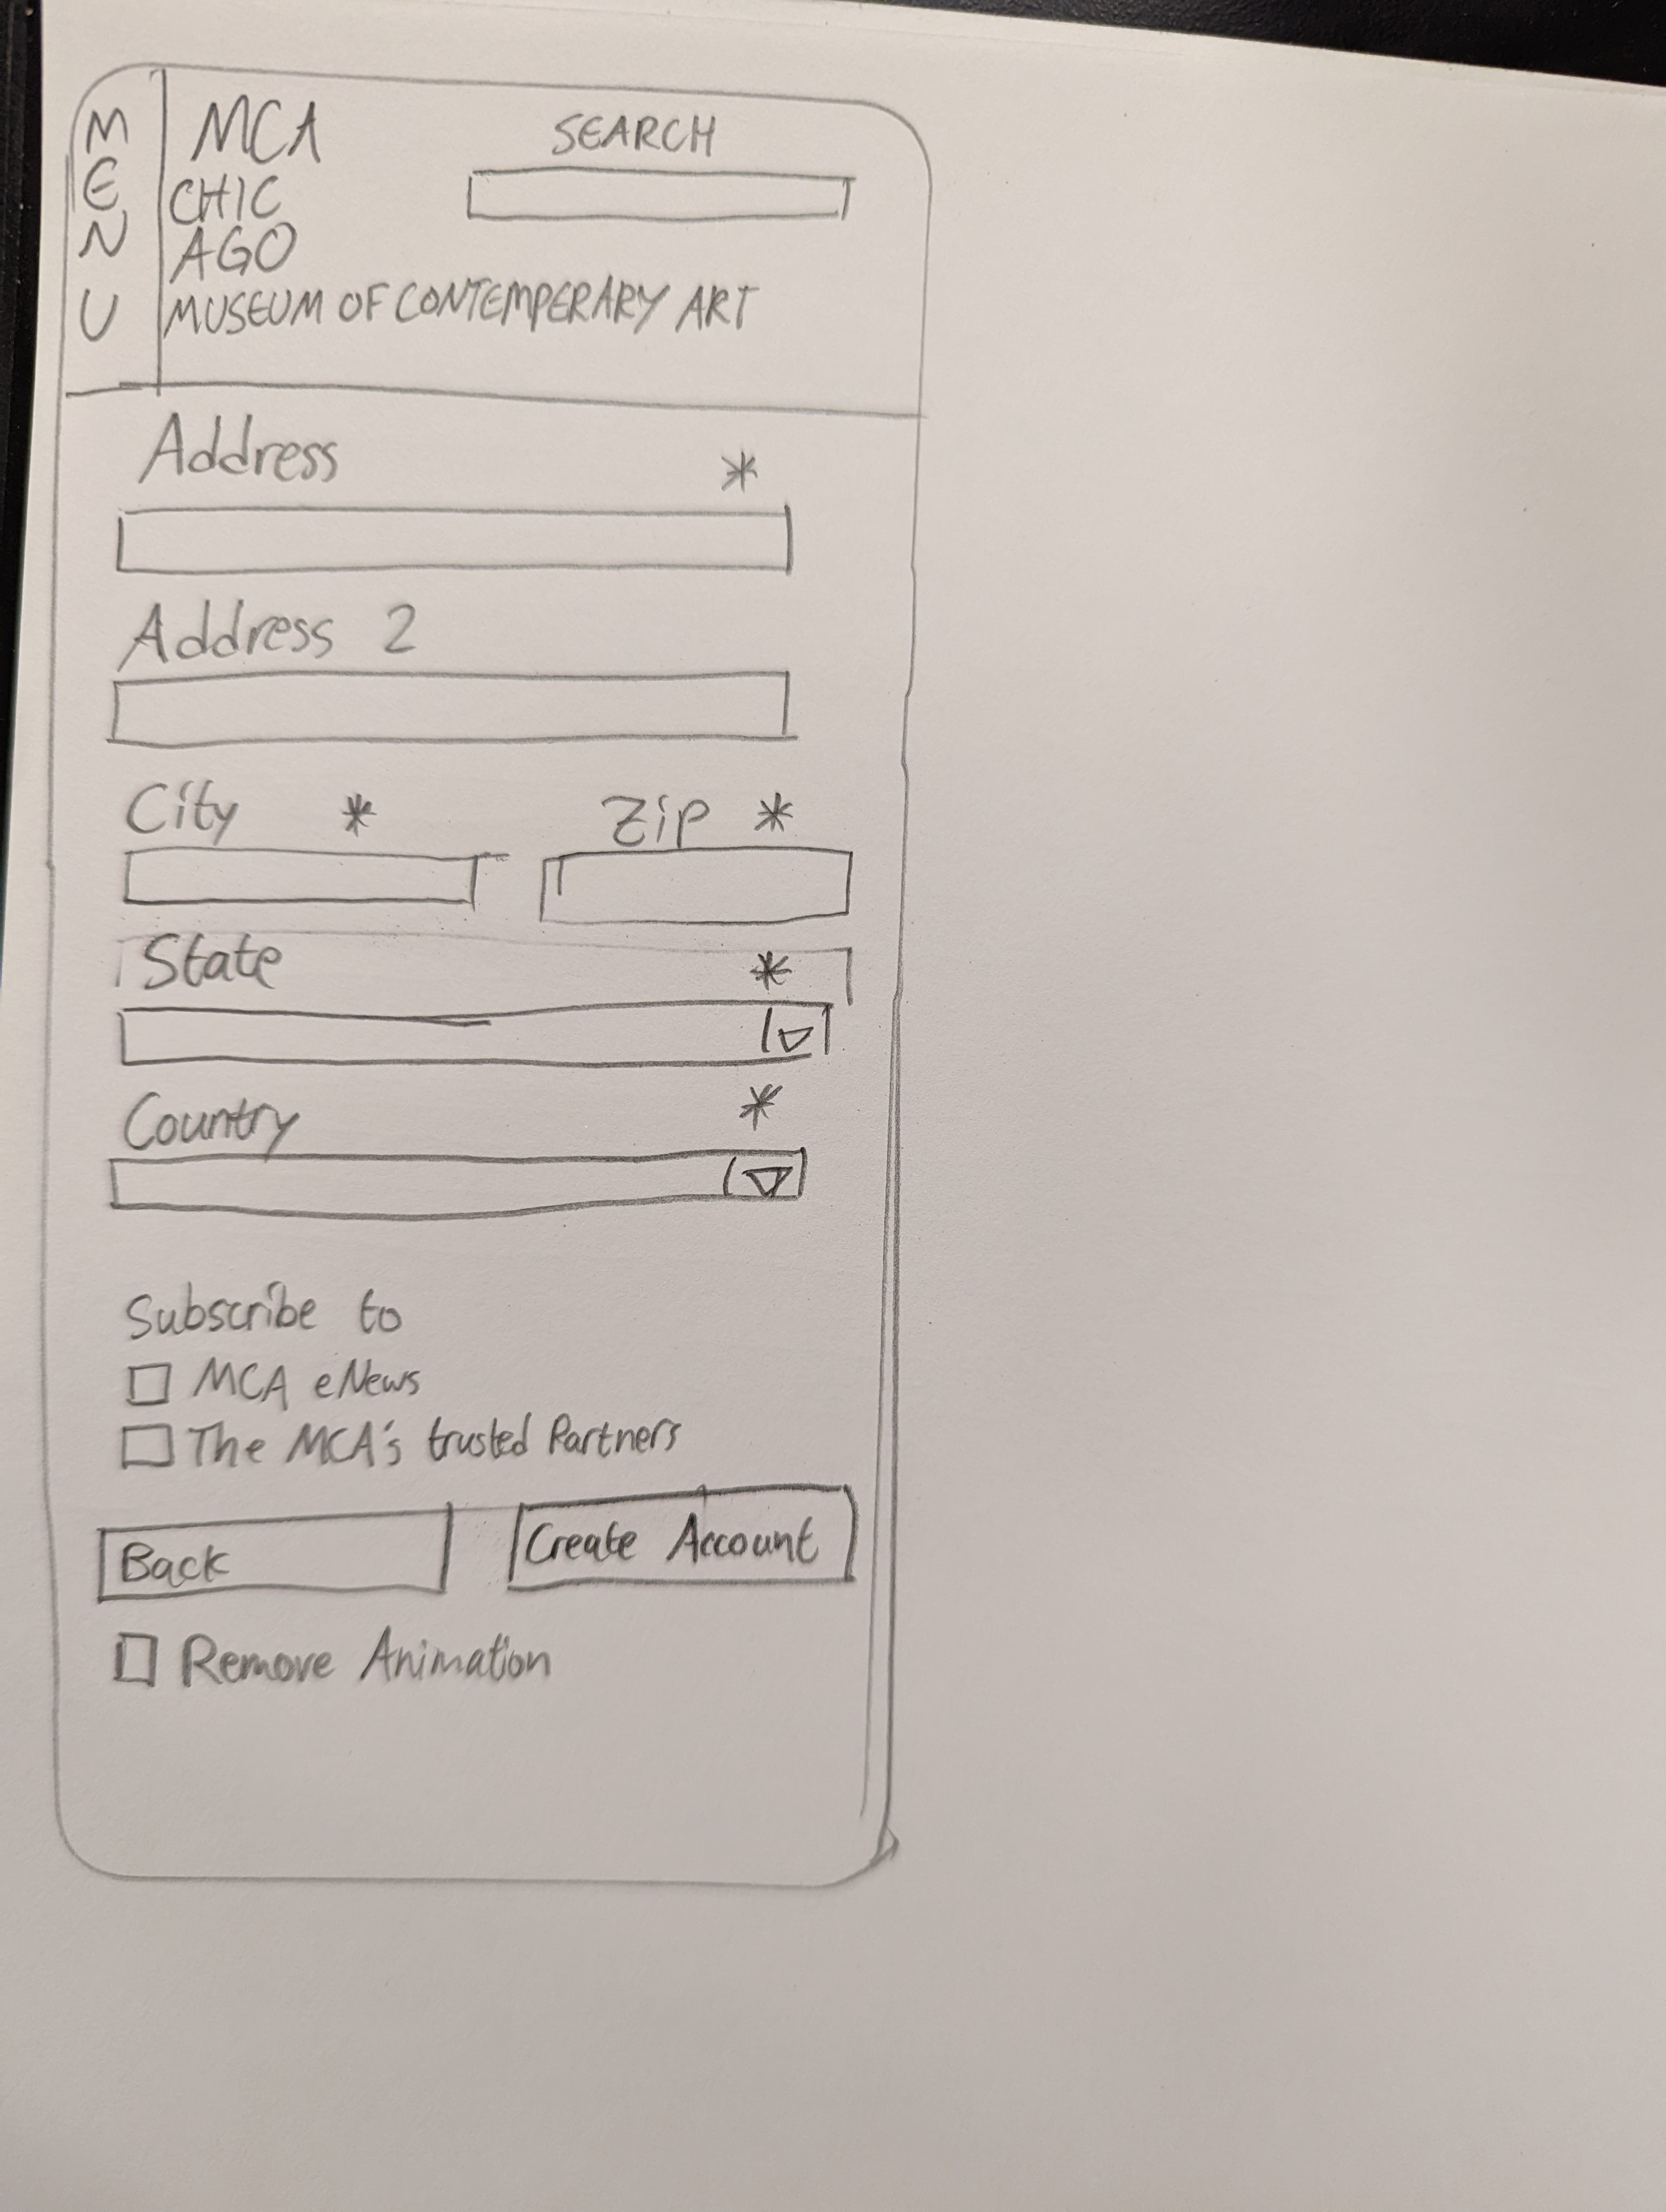 MENU
MCA
CHIC
AGO
MUSEUM OF CONTEMPERARY ART
SEARCH
Address *
Address 2
City * Zip *
State *
Country *
Subscribe to
MCA eNews
The MCA's trusted Partners
Back Create Account
Remove Animation